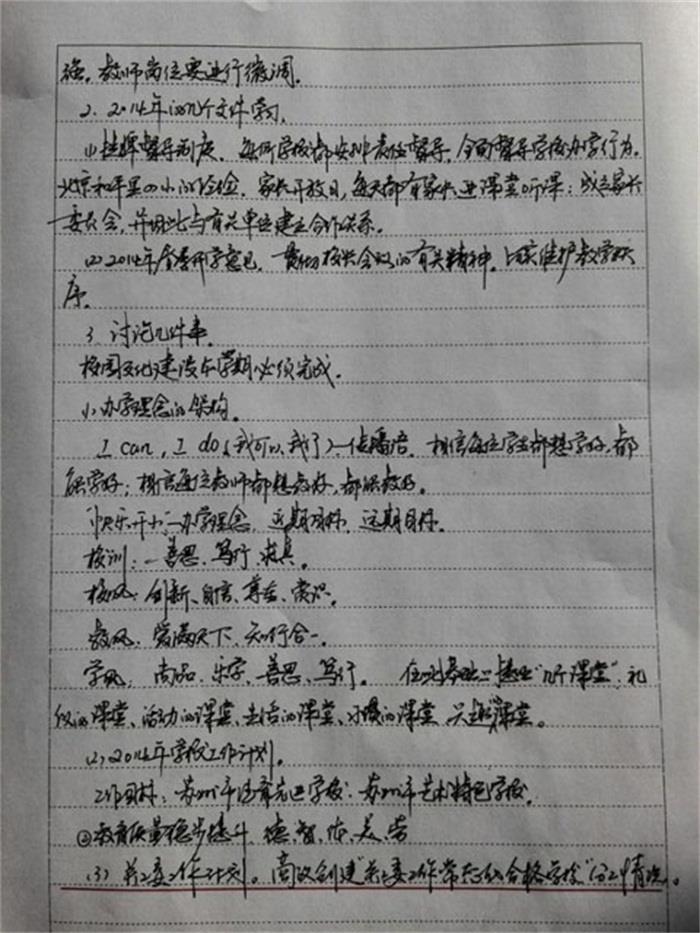 强。教师岗位要进行微调。
2. 2014年的几个文件学习。
(1)挂牌督导制度。每所学校都安排责任督导,全面督导学校办学行为。
北京和平里四小的经验,家长开放日,每天都有家长进课堂听课;成立家长
委员会,并因此与有关单位建立合作关系。
(2)2014年春季开学意见。贯彻校长会议的有关精神。切实维护教学秩
序。
3. 讨论几件事。
校园文化建设本学期必须完成。
(1)办学理念的架构。
I can, I do(我可以,我行)—传播语。相信每位学生都想学好,都
能学好;相信每位教师都想教好,都能教好。
快乐开小—办学理念,近期目标,远期目标。
校训:—善思、笃行、求真。
校风:创新、自信、尊在、赏识。
教风:爱满天下、知行合一。
学风:尚品、乐学、善思、笃行。在此基础上提出"几个课堂":礼
仪的课堂、活动的课堂、生活的课堂、习惯的课堂、兴趣课堂。
(2)2014年学校工作计划。
工作目标:苏州市德育先进学校;苏州市艺术特色学校。
②教育质量稳步提升,德、智、体、美、劳
(3)关工委工作计划。高效创建"关工委工作常态化合格学校"分工情况。